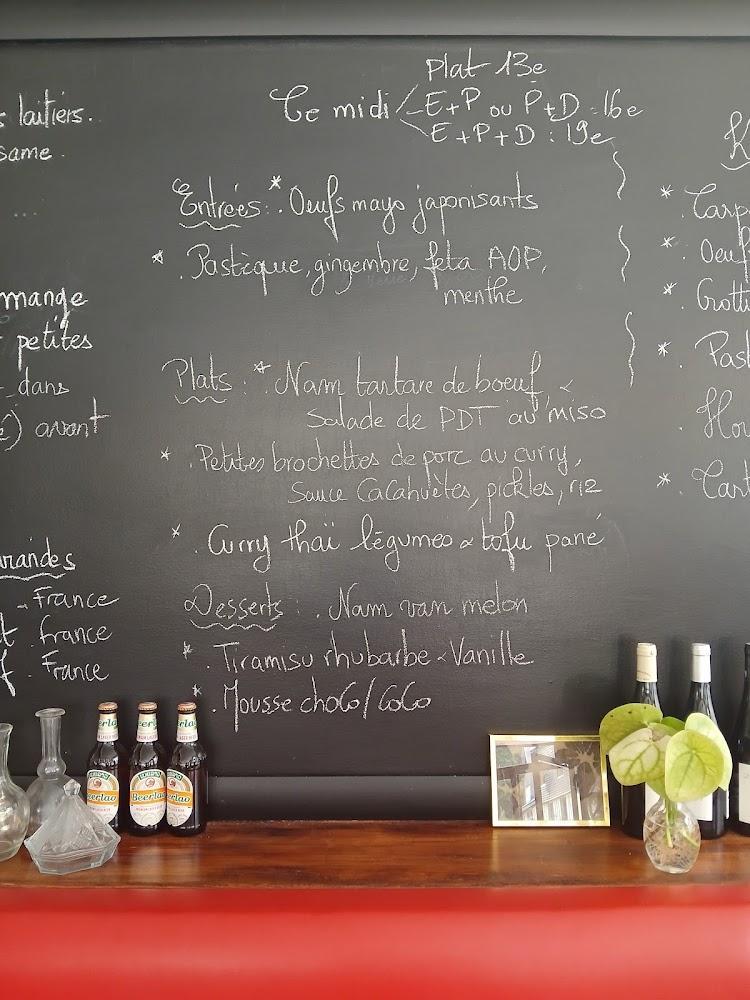 laitiers.
same.
mange
petites
dans
avant
France
France
France
Plat 13e
Ce midi E+P ou P+D : 16e
E+P+D : 19e
Entrées : * . Oeufs mayo japonisants
* . Pastèque, gingembre, feta AOP,
menthe
Plats : * . Nam tartare de boeuf &
Salade de PDT au miso
* . Petites brochettes de porc au curry,
Sauce Cacahuètes, pickles, riz
* . Curry thaï légumes & tofu pané
Desserts : . Nam van melon
* . Tiramisu rhubarbe & Vanille
* . Mousse choco/coco
*
*
*
*
*
Beerlao